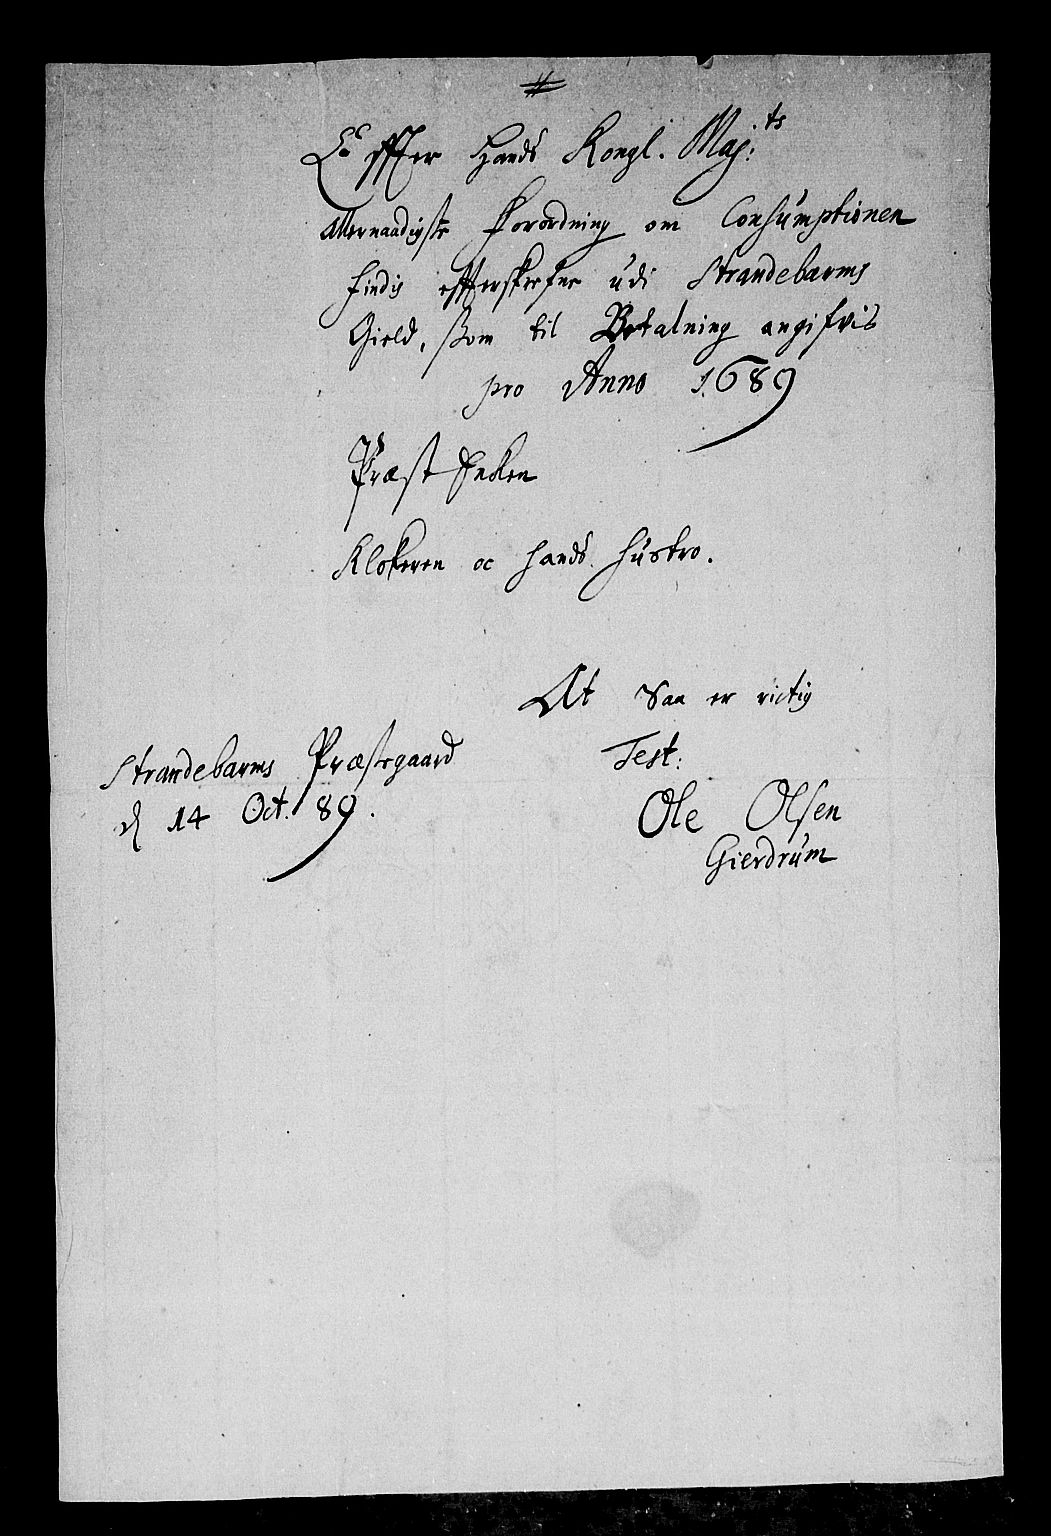 Effter Hands Kongl. Maj:ts
Allernaadigste Forordning om Consumptionen
findis effterskrefne udi Strandebarms
Gield, som til Betalning angifvis
pro Anno 1689
Præst Enken
Klokeren oc hands hustro.
At saa er rictig
Test:
Ole Olsen
Gierdrum
Strandebarms Præstegaard
d 14 Oct. 89.